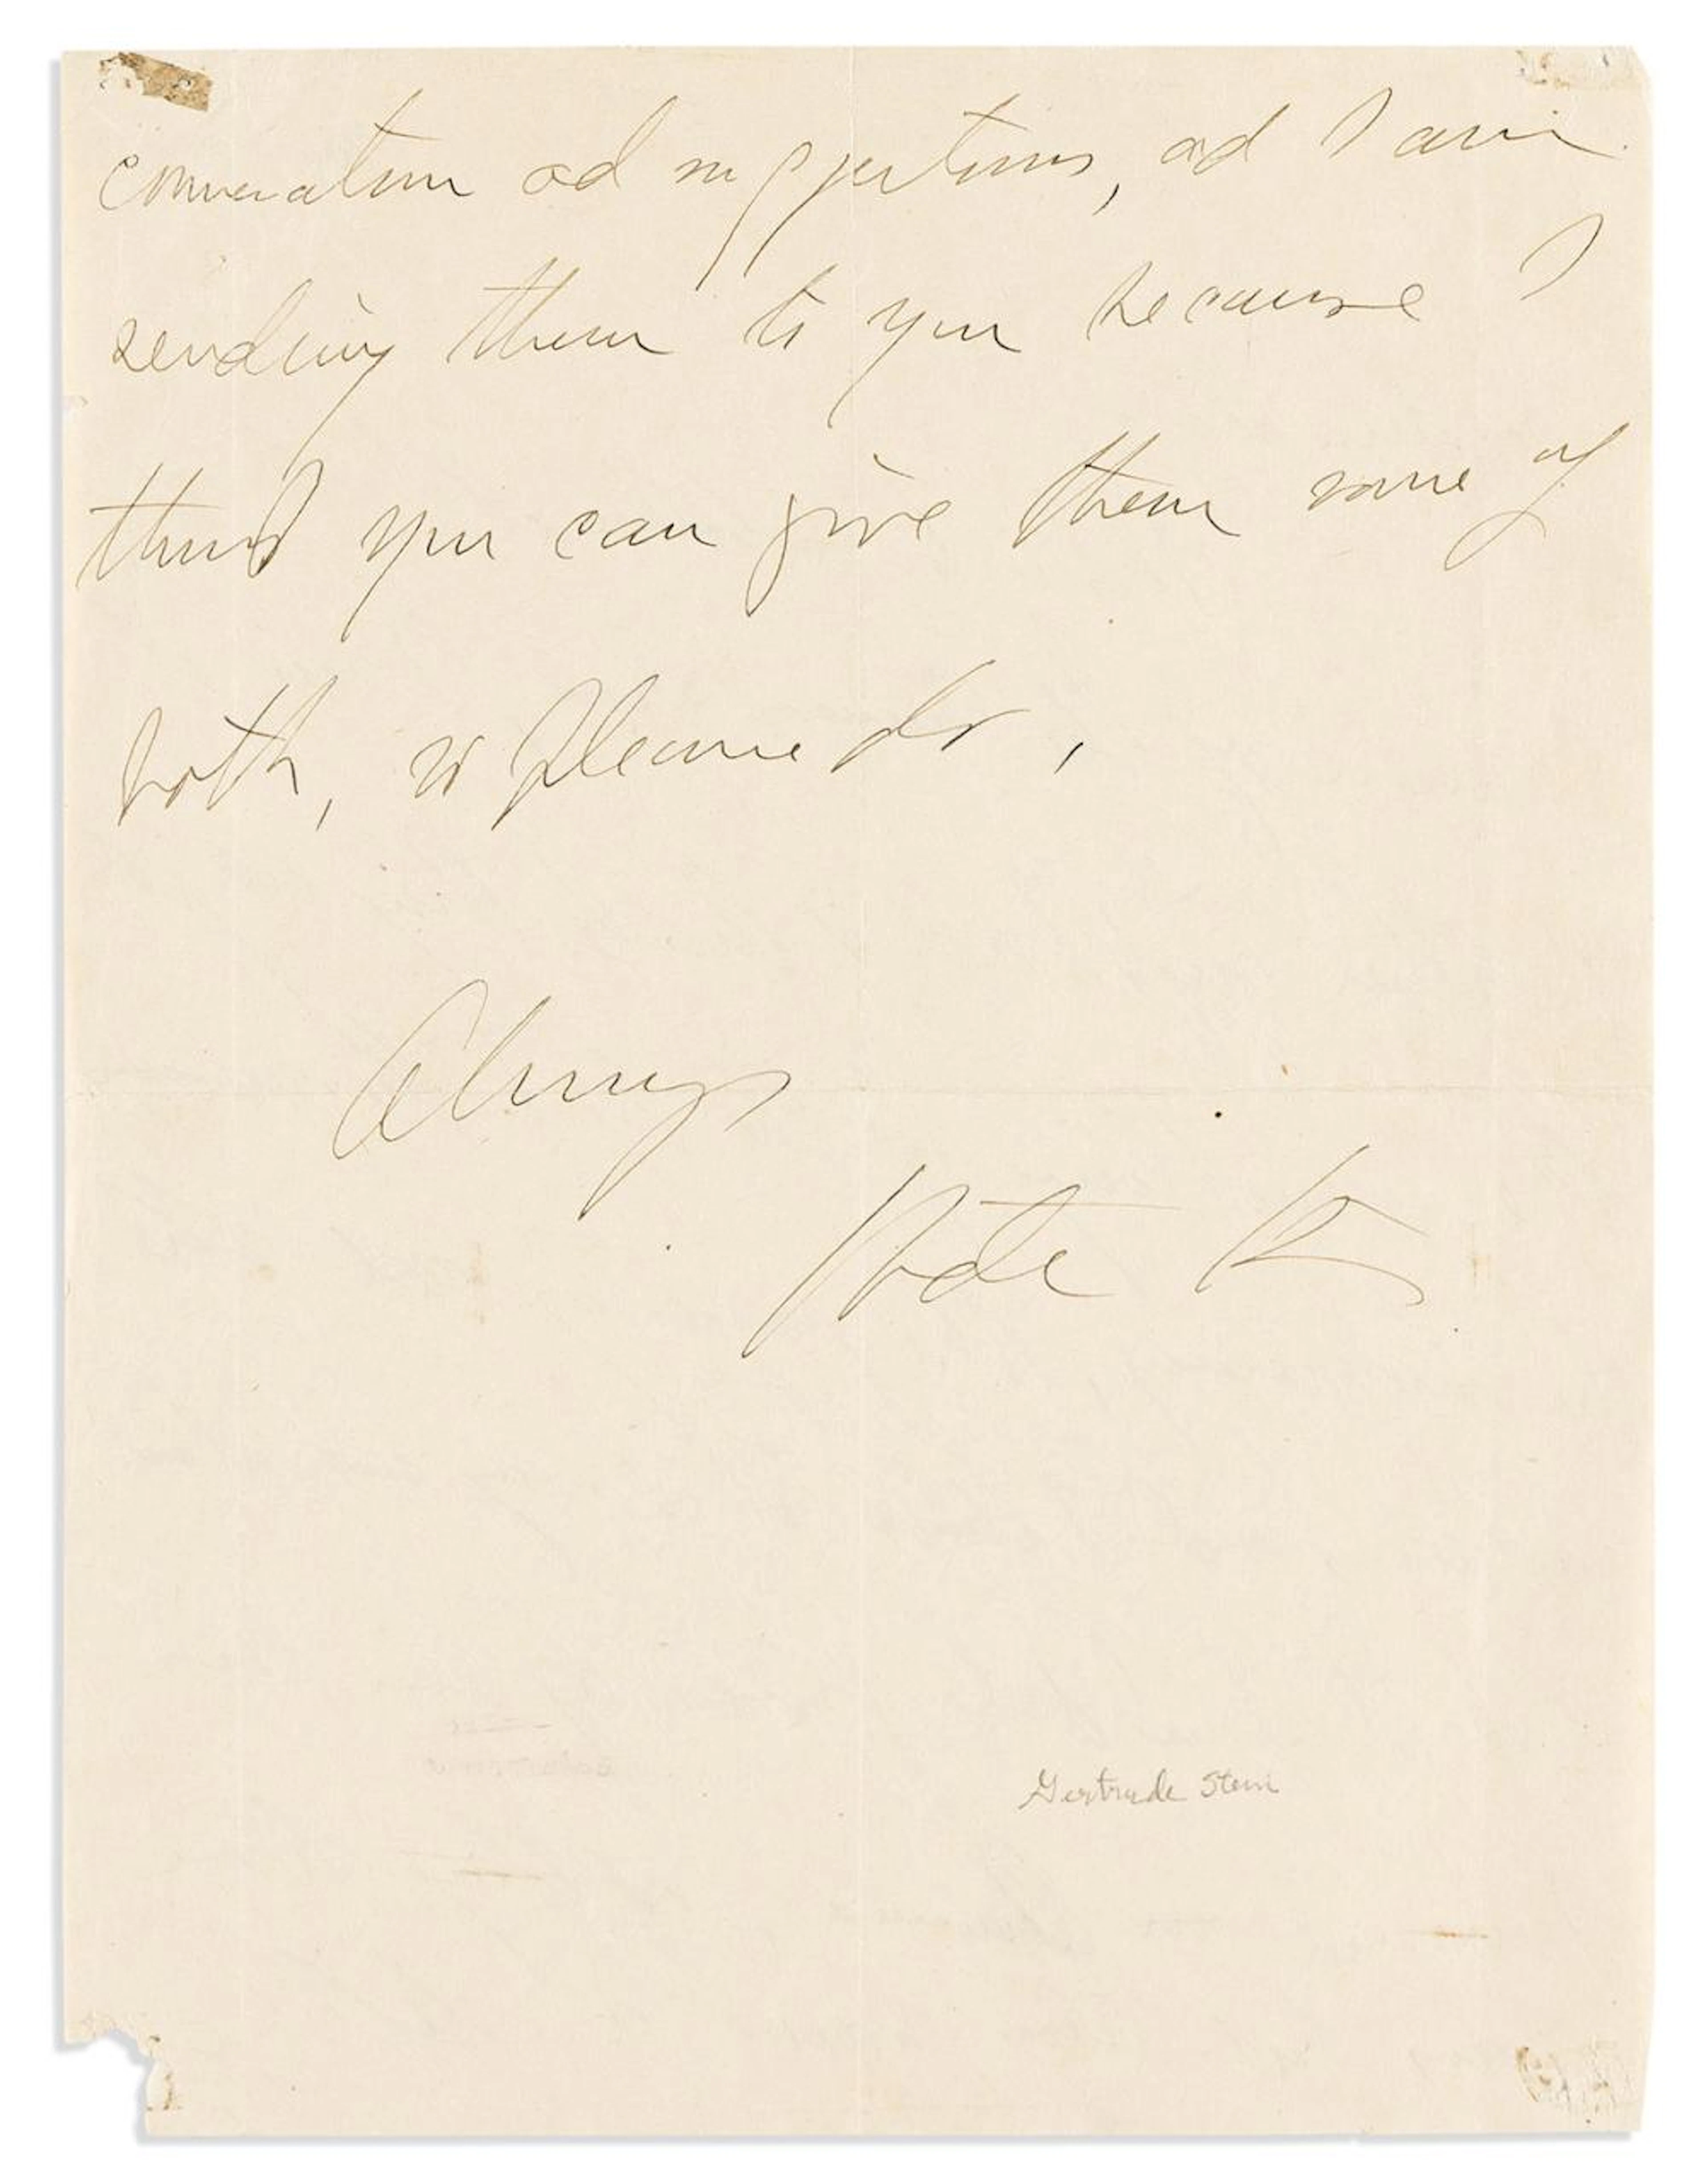 conversation and suggestions, and I am
sending them to you because I
think you can give them some of
both, so please do,
Always
Gtde St
Gertrude Stein